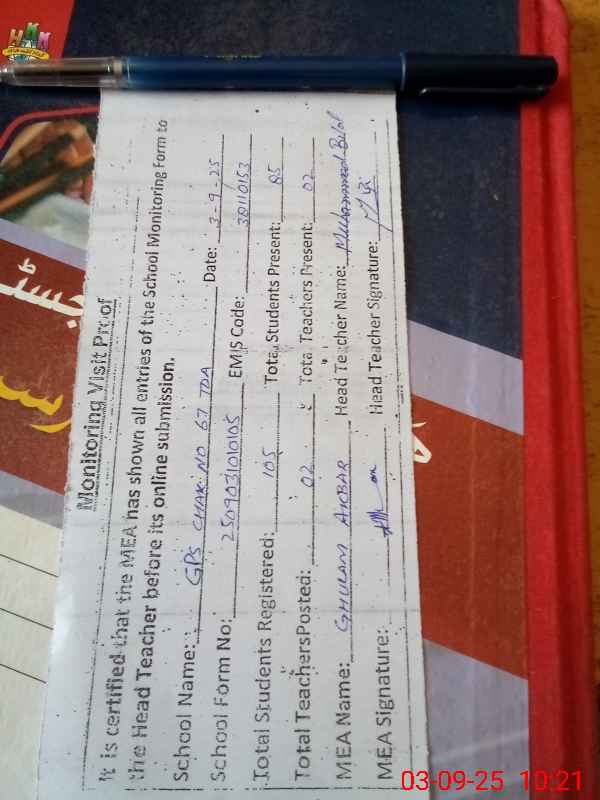 Monitoring Visit Proof
It is certified that the MEA has shown all entries of the School Monitoring Form to
the Head Teacher before its online submission.
School Name: GPS CHAK NO 67 TDA Date: 3-9-25
School Form No: 2509031010105 EMIS Code: 38110153
Total Students Registered: 105 Total Students Present: 85
Total TeachersPosted: 02 Total Teachers Present: 02
MEA Name: GHULAM AKBAR Head Teacher Name: Muhammad Bilal
MEA Signature: Head Teacher Signature:
03-09-25 10:21